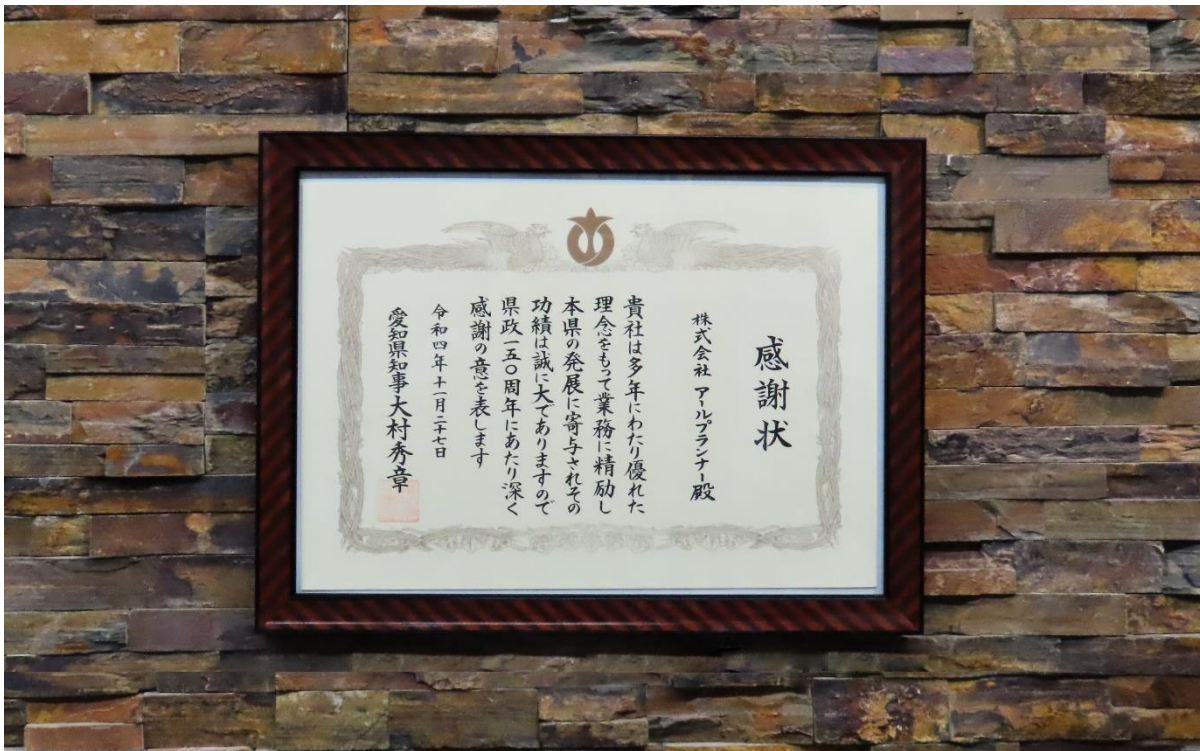 感謝状
株式会社 アールプランナー殿
貴社は多年にわたり優れた
理念をもって業務に精励し
本県の発展に寄与されその
功績は誠に大でありますので
県政一五〇周年にあたり深く
感謝の意を表します
令和四年十一月二十七日
愛知県知事大村秀章